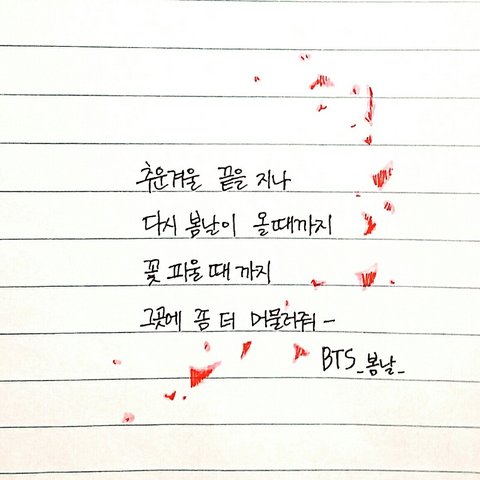 추운겨울 끝을 지나
다시 봄날이 올때까지
꽃 피울때까지
그곳에 좀 더 머물러줘 -
BTS_봄날_